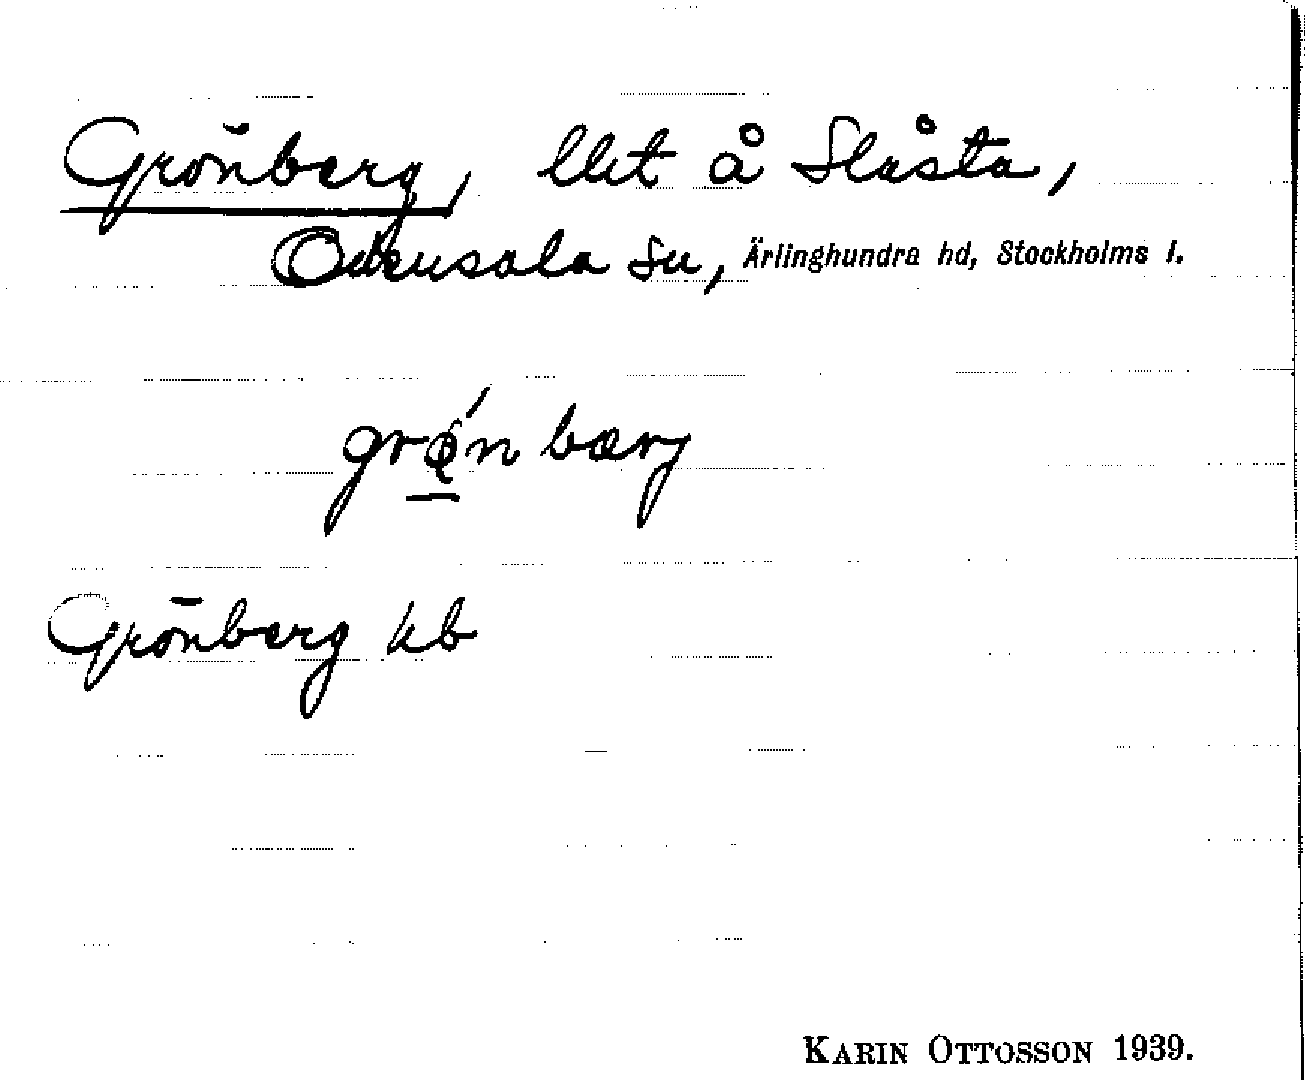 Grönberg, llt å Slåsta,
Odensala sn, Ärlinghundra hd, Stockholms l.
grǿn bærj
Grönberg kb
KARIN OTTOSSON 1939.